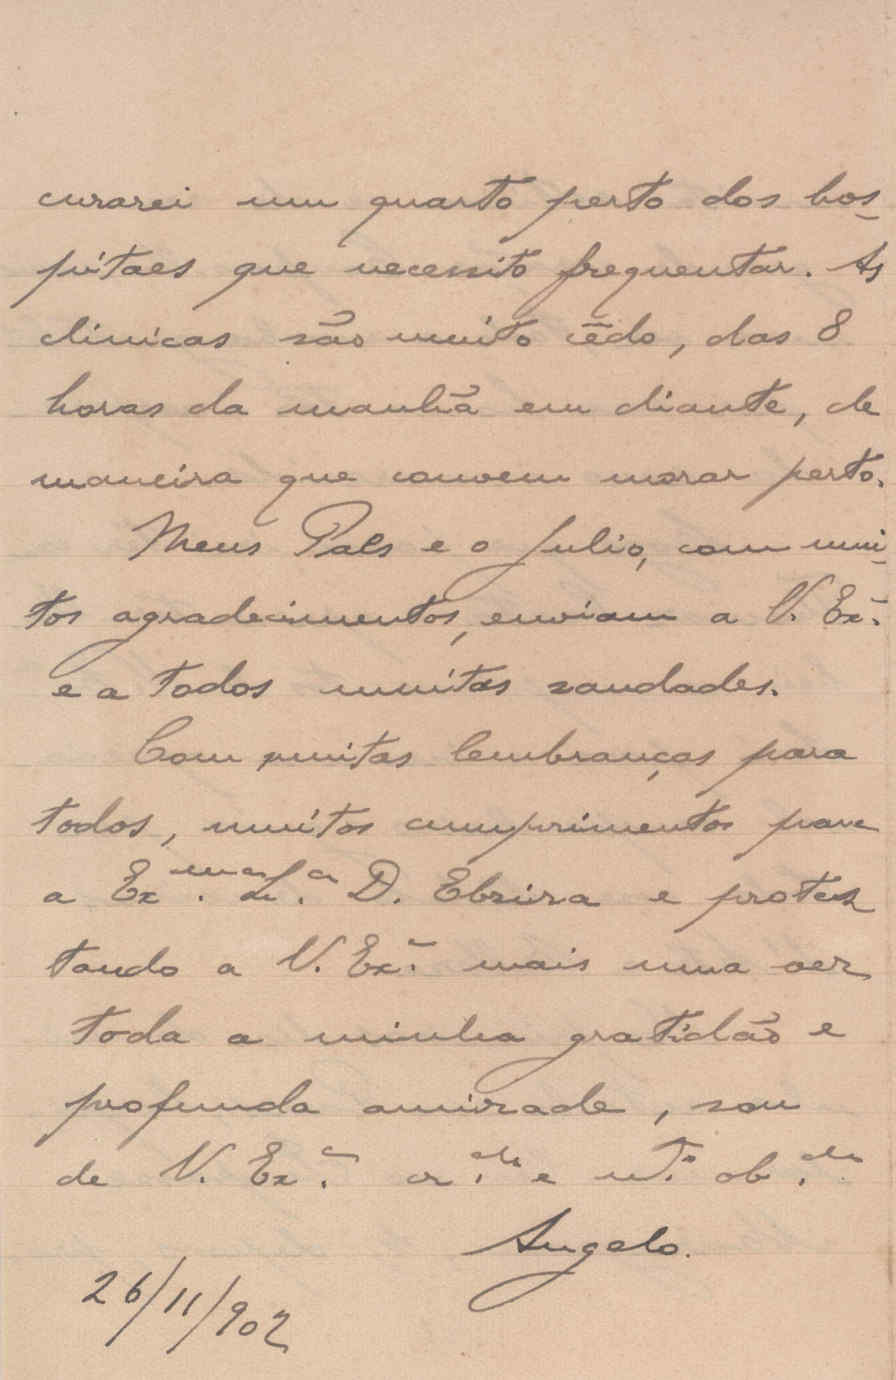 curarei um quarto perto dos hos-
pitaes que necessito frequentar. As
clinicas são muito cêdo, das 8
horas da manhã em diante, de
maneira que convem morar perto.
Meus Paes e o Julio, com mui-
tos agradecimentos, enviam a V. Ex.ª
e a todos muitas saudades.
Com muitas lembranças para
todos, muitos cumprimentos para
a Ex.ma Sr.a D. Elzira e protes-
tando a V. Ex.ª mais uma vez
toda a minha gratidão e
profunda amizade, sou
de V. Ex.ª cr.do e m.to ob.do
Angelo.
26/11/902